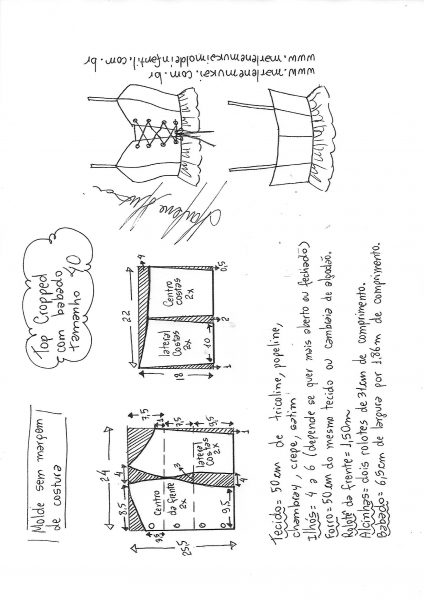 Molde sem margem
de costura
Top Cropped
com babado
tamanho
40
www.marlenemukai.com.br
www.marlenemukaimoldeinfantil.com.br
24
8,5
4
7,5
7,5
9,5
25,5
9,5
Centro
da frente
2x
3
laterais
Costas
2x
9,5
4
1
22
4
18
lateral
Costas
2x
Centro
costas
2x
10
1
2
0,5
Tecido= 50 cm de tricoline, popeline,
chambray, crepe, cetim
Ilhós= 4 a 6 (depende se quer mais aberto ou fechado)
Forro= 50 cm do mesmo tecido ou cambraia de algodão.
Rolotê da frente= 1,50m
Alcinhas= dois rolotes de 31cm de comprimento.
Babado= 6,5cm de largura por 1,86m de comprimento.